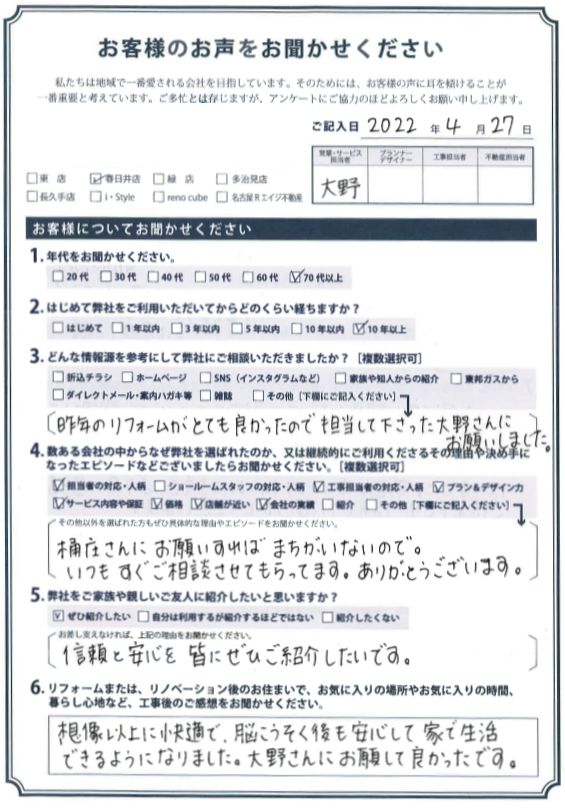 お客様のお声をお聞かせください
私たちは地域で一番愛される会社を目指しています。そのためには、お客様の声に耳を傾けることが
一番重要と考えています。ご多忙とは存じますが、アンケートにご協力のほどよろしくお願い申し上げます。
ご記入日 2022 年 4 月 27 日
営業・サービス担当者 プランナーデザイナー 工事担当者 不動産担当者
大野
□東 店 ☑春日井店 □緑 店 □多治見店
□長久手店 □i・Style □reno cube □名古屋Rエイジ不動産
お客様についてお聞かせください
1. 年代をお聞かせください。
□20代 □30代 □40代 □50代 □60代 ☑70代以上
2. はじめて弊社をご利用いただいてからどのくらい経ちますか?
□はじめて □1年以内 □3年以内 □5年以内 □10年以内 ☑10年以上
3. どんな情報源を参考にして弊社にご相談いただきましたか?[複数選択可]
□折込チラシ □ホームページ □SNS(インスタグラムなど) □家族や知人からの紹介 □東邦ガスから
□ダイレクトメール・案内ハガキ等 □雑誌 □その他(下欄にご記入ください)
昨年のリフォームがとても良かったので担当して下さった大野さんに
お願いしました。
4. 数ある会社の中からなぜ弊社を選ばれたのか、又は継続的にご利用くださるその理由や決め手に
なったエピソードなどございましたらお聞かせください。[複数選択可]
☑担当者の対応・人柄 □ショールームスタッフの対応・人柄 ☑工事担当者の対応・人柄 ☑プラン&デザイン力
☑サービス内容や保証 ☑価格 ☑店舗が近い ☑会社の実績 □紹介 □その他[下欄にご記入ください]
その他以外を選ばれた方もぜひ具体的な理由やエピソードをお聞かせください。
桶庄さんにお願いすればまちがいないので。
いつもすぐご相談させてもらってます。ありがとうございます。
5. 弊社をご家族や親しいご友人に紹介したいと思いますか?
☑ぜひ紹介したい □自分は利用するが紹介するほどではない □紹介したくない
お差し支えなければ、上記の理由をお聞かせください。
信頼と安心を皆にぜひご紹介したいです。
6. リフォームまたは、リノベーション後のお住まいで、お気に入りの場所やお気に入りの時間、
暮らし心地など、工事後のご感想をお聞かせください。
想像以上に快適で、脳こうそく後も安心して家で生活
できるようになりました。大野さんにお願して良かったです。